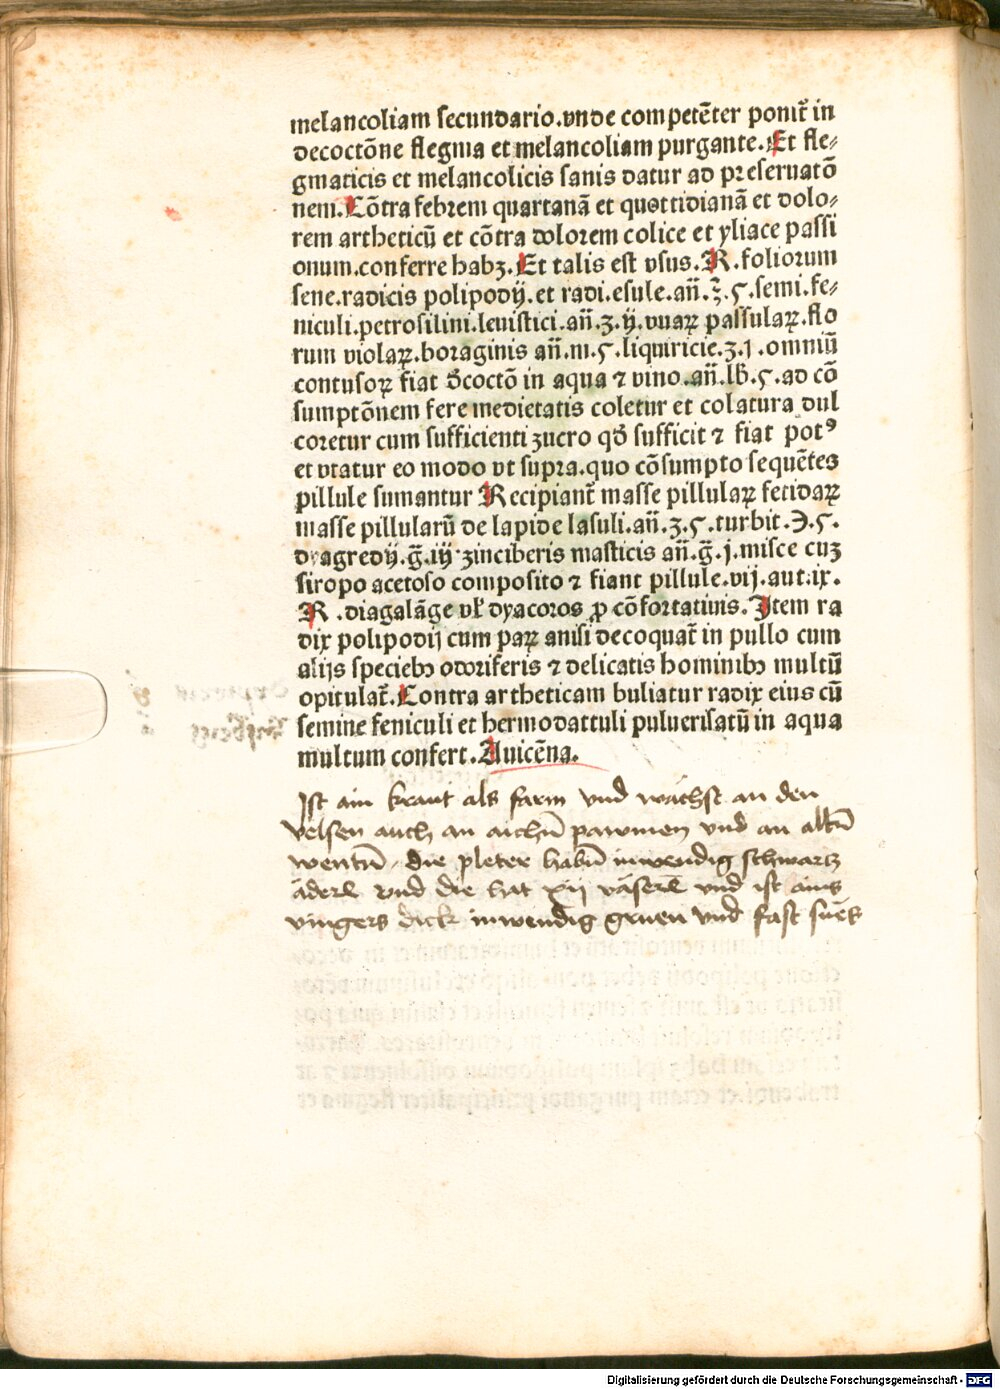 melancoliam secundario.vnde competēter ponit̄ in
decoctōne flegma et melancoliam purgante.Et fle⸗
gmaticis et melancolicis sanis datur ad preseruatō
nem.Cōtra febrem quartanā et quottidianā et dolo⸗
rem artheticū et cōtra dolorem colice et yliace passi
onum.conferre habꝫ.Et talis est vsus.R.foliorum
sene.radicis polipodij.et radi.esule.an̄.ʒ̄.ς.semi.fe⸗
niculi.petrosilini.leuistici.an̄.ʒ.ij.vuaꝝ passulaꝝ.flo
rum violaꝝ.boraginis an̄.m.ς.liquiricie.ʒ.1.omniū
contusoꝝ fiat d̄coctō in aqua ⁊ vino.an̄.lb̄.ς.ad cō
sumptōnem fere medietatis coletur et colatura dul
coretur cum sufficienti zucro qd̄ sufficit ⁊ fiat potꝰ
et vtatur eo modo vt supra.quo cōsumpto sequētes
pillule sumantur Recipiant̄ masse pillulaꝝ fetidaꝝ
masse pillularū de lapide lasuli.an̄.ʒ.ς.turbit.℈.ς.
dyagredij.g̅.iij.zinciberis masticis an̄.g̅.j.misce cuꝫ
siropo acetoso composito ⁊ fiant pillule.vij.aut.ix.
R.diagalāge vl̄ dyacoros ꝓ cōfortatiuis.Item ra
dix polipodij cum paꝝ anisi decoquat̄ in pullo cum
alijs specieb⁹ odoriferis ⁊ delicatis hominib⁹ multū
opitulat̄.Contra artheticam buliatur radix eius cū
semine feniculi et hermodattuli puluerisatū in aqua
multum confert.Auicēna.
Ist ain kraut als farm vnd wächst an den
velsen auch an aichn̄ pawmen vnd an altn̄
wentn̄, die pleter habn̄ inwendig schwartz
äderl vnd die hat xij väserl vnd ist ains
vingers dick inwendig gruen vnd fast sües
Digitalisierung gefördert durch die Deutsche Forschungsgemeinschaft - DFG